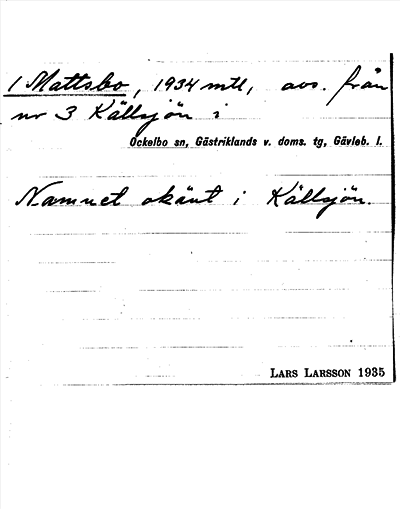 1 Mattsbo, 1934 mtl, avs. från
nr 3 Källsjön i
Ockelbo sn, Gästriklands v. doms. tg, Gävleb. l.
Namnet okänt i Källsjön.
LARS LARSSON 1935